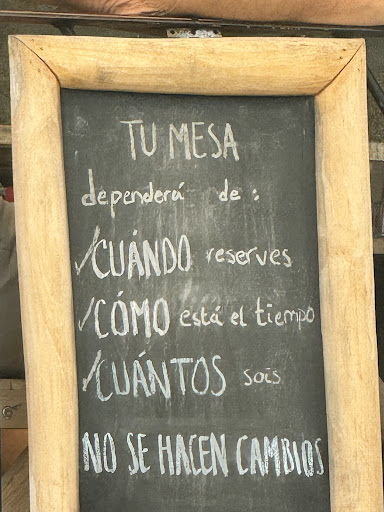 TU MESA
dependerá de :
✓CUÁNDO reserves
✓CÓMO está el tiempo
✓CUÁNTOS sois
NO SE HACEN CAMBIOS